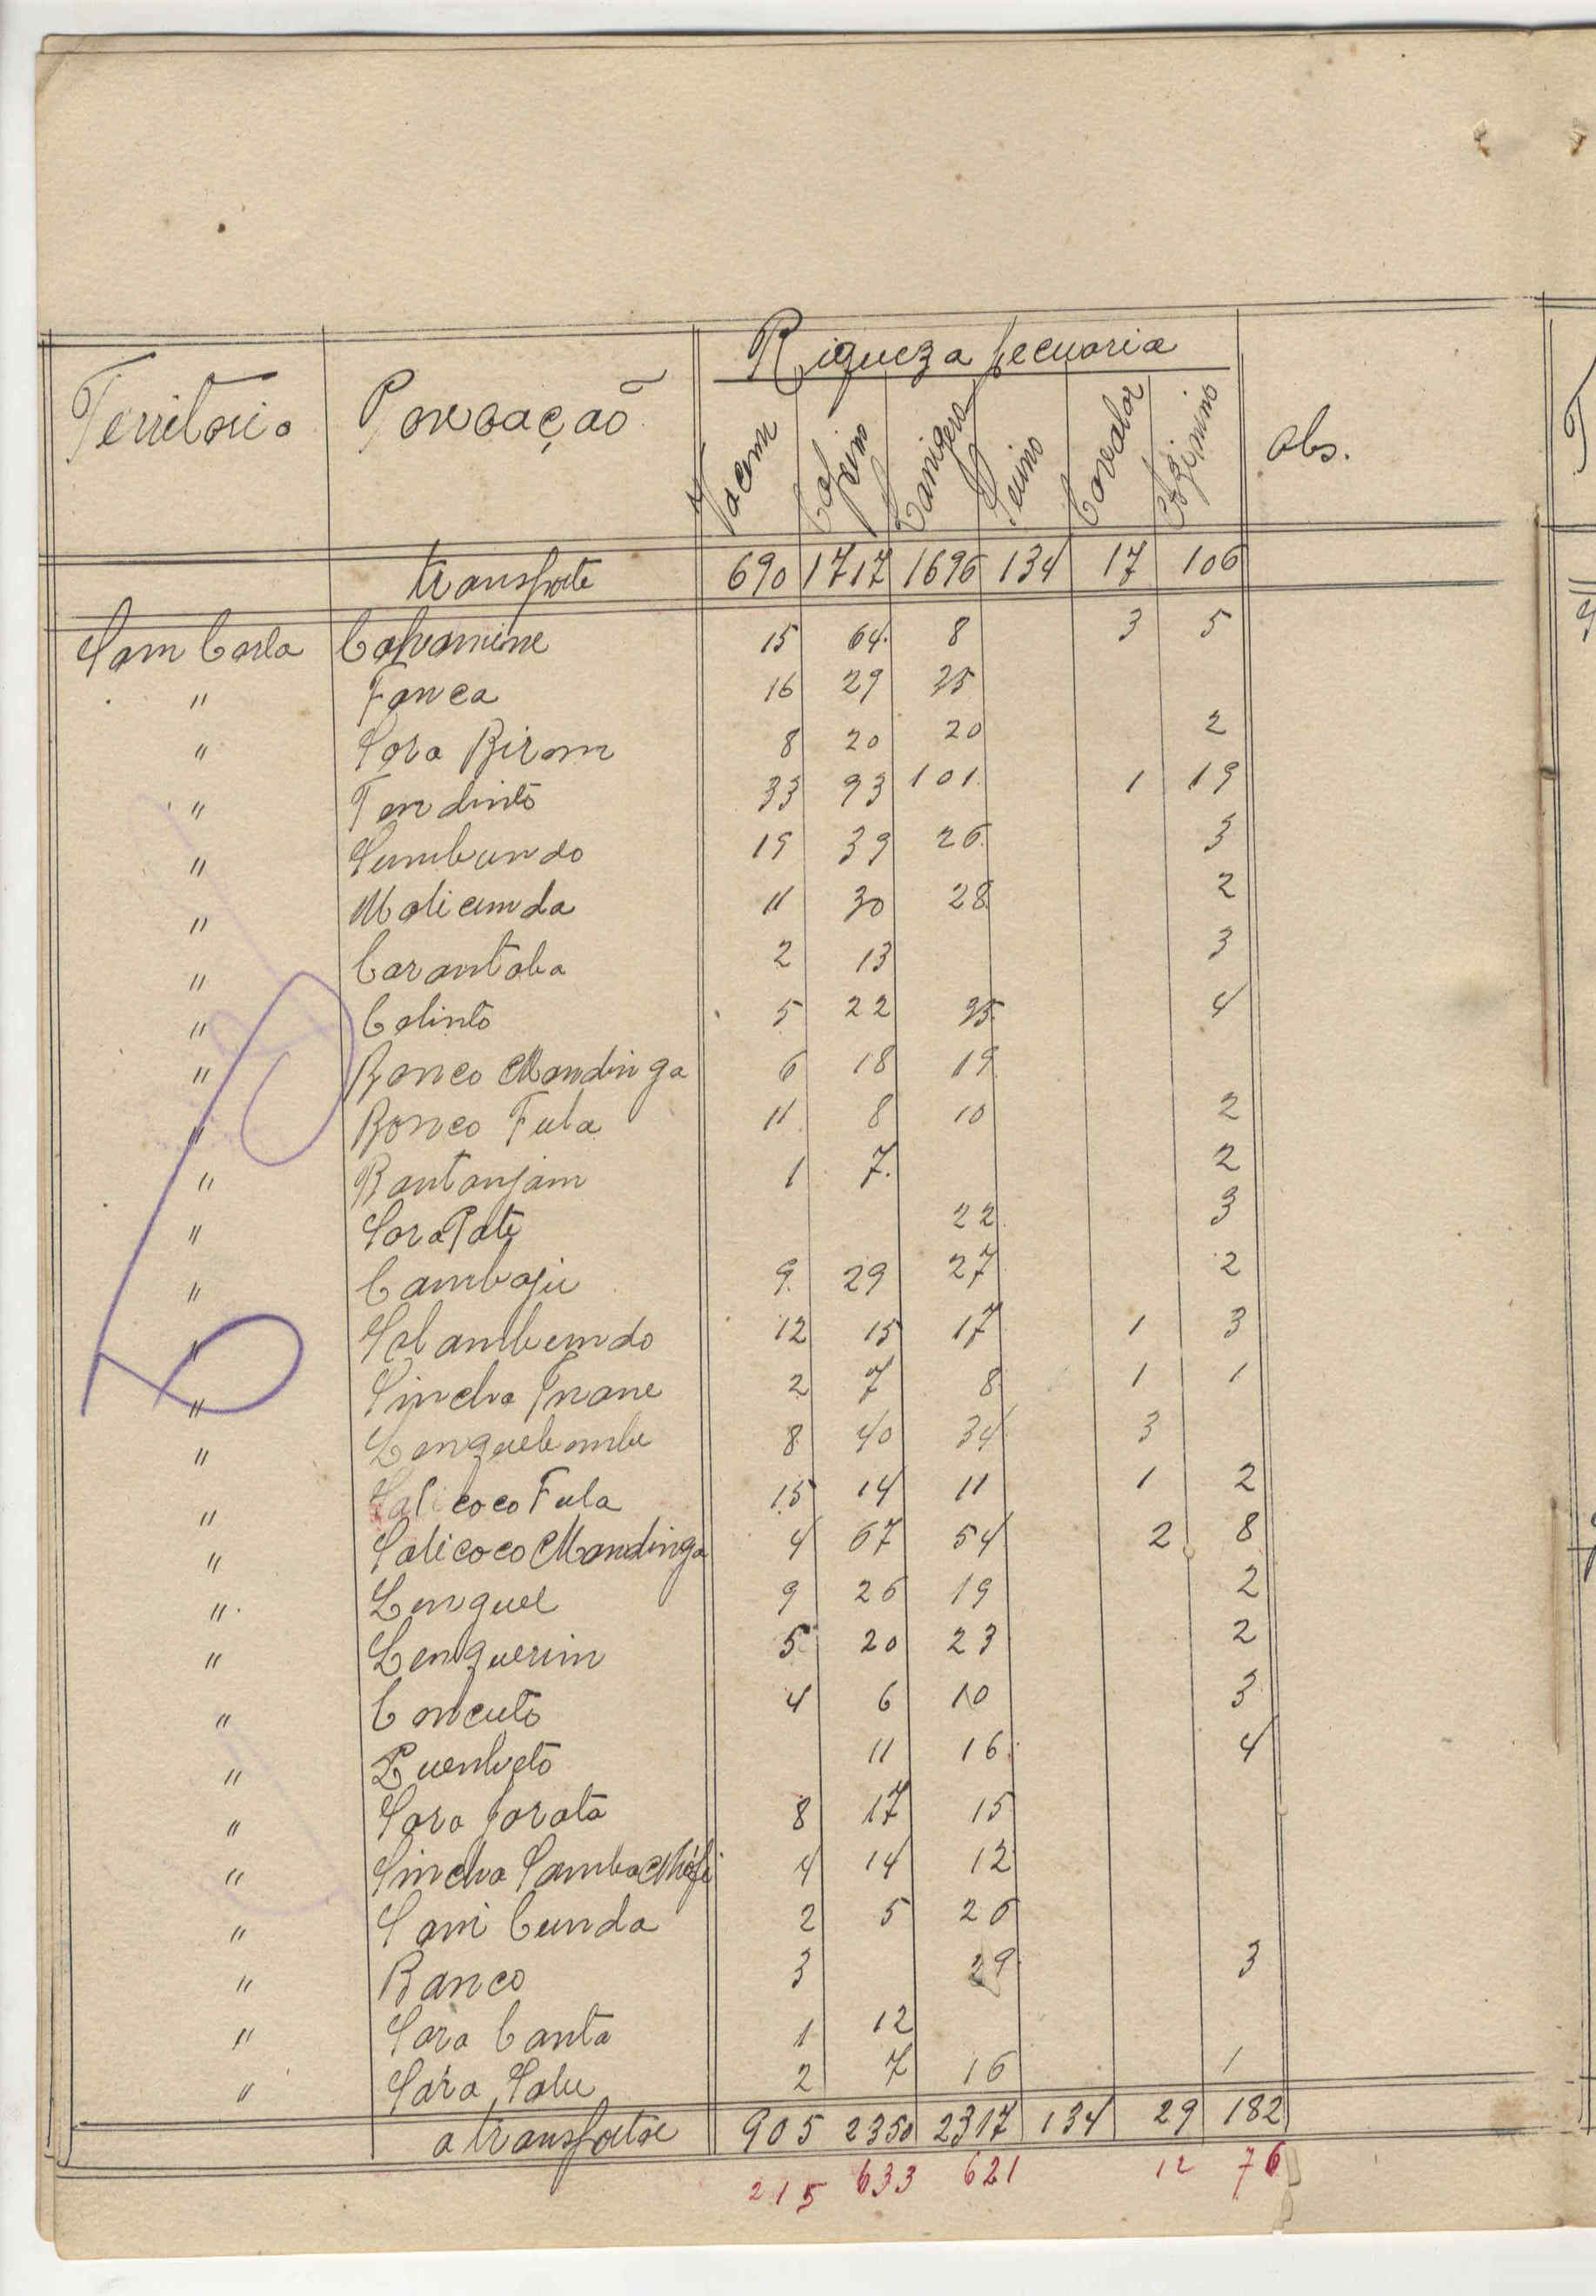 Riqueza pecuaria
Territorio Povoação Vacum Caprino Lanigero Suino Cavalar Azinino Obs.
transporte 690 1717 1696 134 17 106
Sam Corla Cahamine 15 64 8 3 5
" Fanca 16 29 35
" Sara Biram 8 20 20 2
" Tendinto 33 93 101 1 19
" Sumbundo 19 39 26 3
" Malicunda 11 30 28 2
" Carantaba 2 13 3
" Colinto 5 22 35 4
" Banco Mandinga 6 18 19
" Bonco Fula 11 8 10 2
" Bantanjam 1 7 2
" Sara Pate 22 3
" Cambaju 9 29 27 2
" Salambemdo 12 15 17 1 3
" Sincha 2 7 8 1 1
" Lenguebembe 8 40 34 3
" Salicoco Fula 15 14 11 1 2
" Salicoco Mandinga 4 67 54 2 8
" Lenguel 9 26 19 2
" Lenguerim 5 20 23 2
" Concuto 4 6 10 3
" Luenheto 11 16 4
" Sara Jarata 8 17 15
" Sincha Samba 4 14 12
" Sani Cunda 2 5 26
" Banco 3 29 3
" Sara Canta 1 12
" Sára Salu 2 7 16 1
a transportar 905 2350 2317 134 29 182
215 633 621 12 76